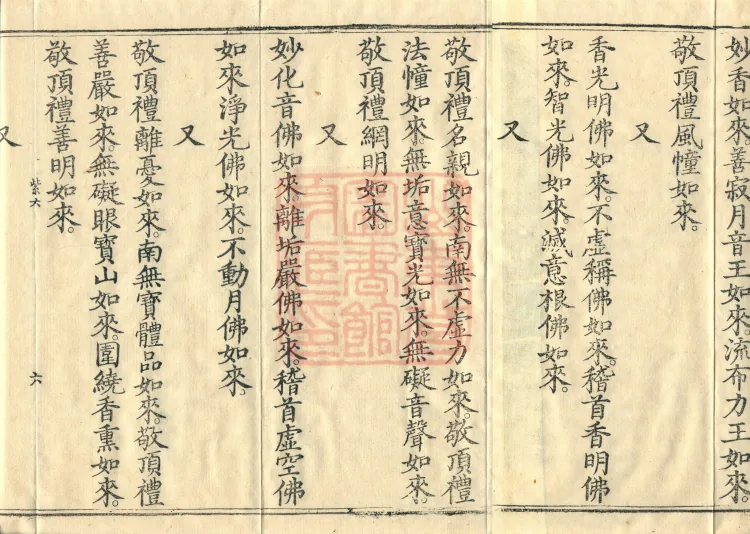 妙香如來。善寂月音王如來。流布力王如來。
敬頂禮風幢如來。
又
香光明佛如來。不虛稱佛如來。稽首香明佛
如來。智光佛如來。滅意根佛如來。
又
敬頂禮名親如來。南無不虛力如來。敬頂禮
法幢如來。無垢意寶光如來。無礙音聲如來。
敬頂禮網明如來。
又
妙化音佛如來。離垢嚴佛如來。稽首虛空佛
如來淨光佛如來。不動月佛如來。
又
敬頂禮離憂如來。南無寶體品如來。敬頂禮
善嚴如來。無礙眼寶山如來。圍繞香熏如來。
敬頂禮善明如來。
紫六 六
又